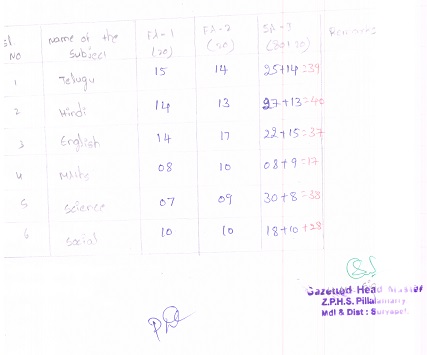 Sl. Name of the FA-1 FA-2 SA-1 Remarks
NO Subject (20) (20) (80+20)
1 Telugu 15 14 25+14=39
2 Hindi 14 13 27+13=40
3 English 14 17 22+15=37
4 Maths 08 10 08+9=17
5 Science 07 09 30+8=38
6 Social 10 10 18+10+28
Gazetted Head Master
Z.P.H.S. Pillalamarry
Mdl & Dist : Suryapet.